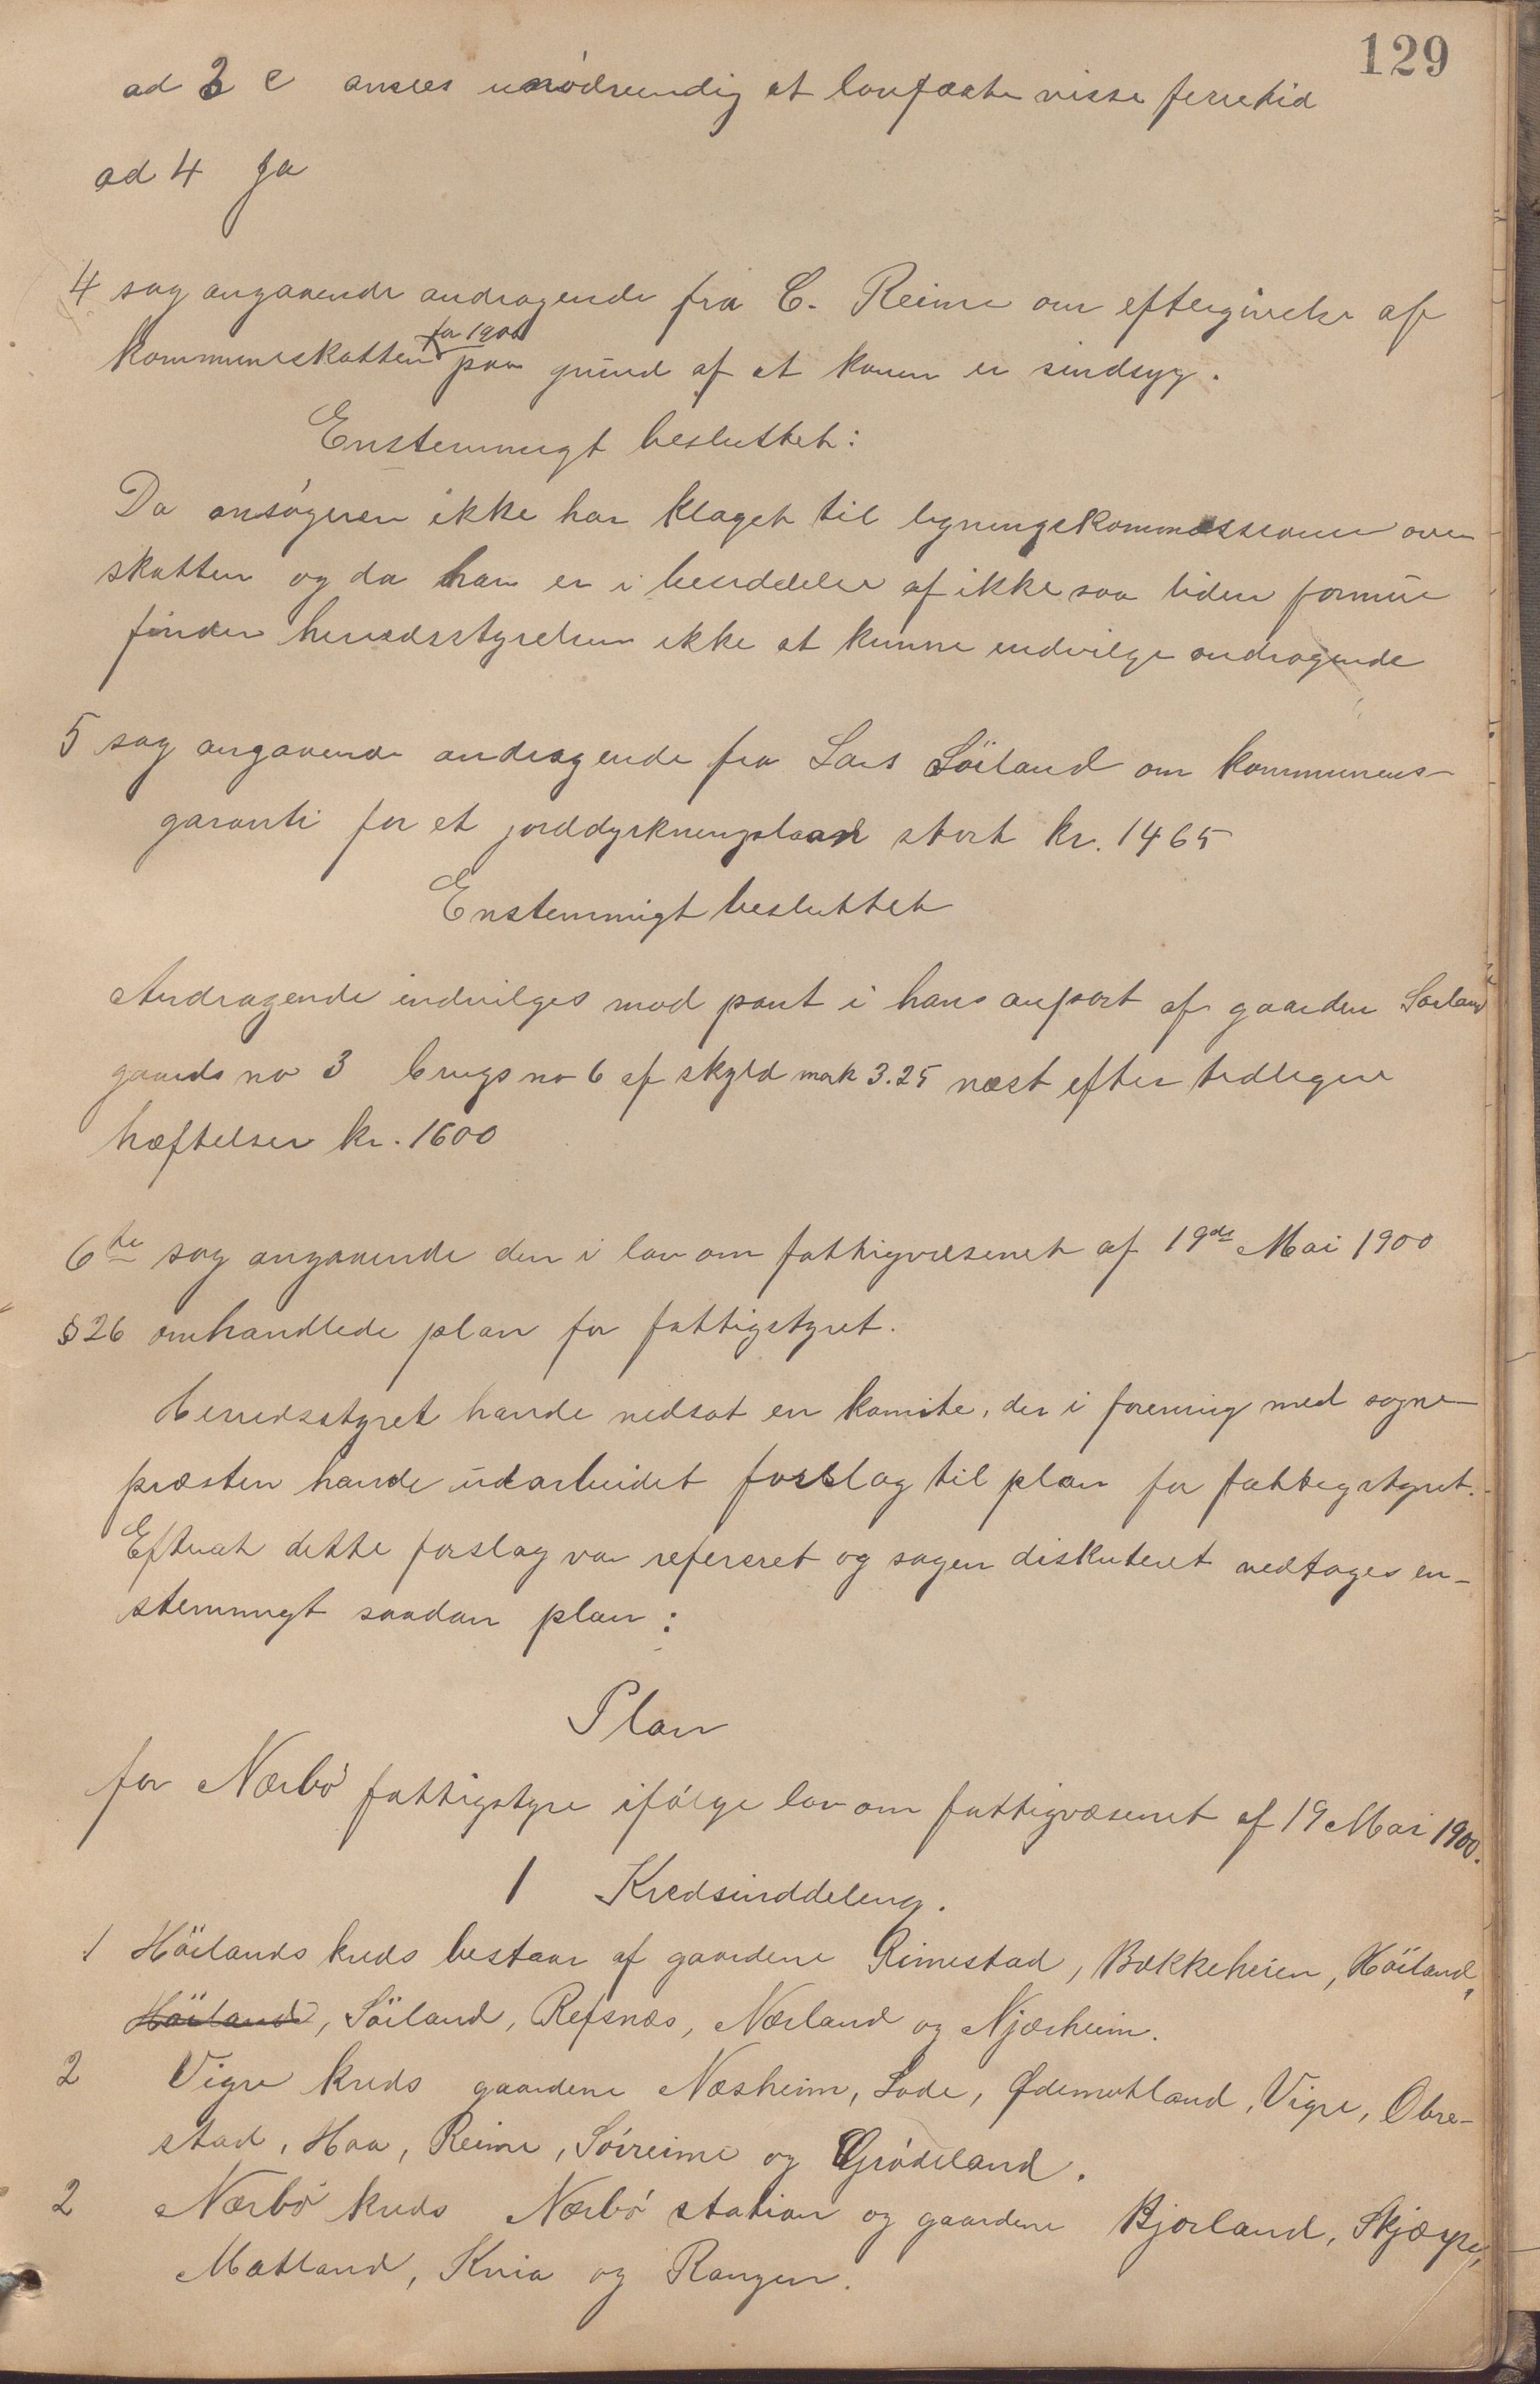 129
ad 3 c ansees unødvendig at lovfæste visse ferietid
ad 4 Ja
4 sag angaaende andragende fra C. Reime om eftergivelse af
kommuneskatten for 1900 paa grund af at konen er sindsyg.
Enstemmigt besluttet:
Da ansøgeren ikke har klaget til ligningskommissionen over
skatten og da han er i besiddelse af ikke saa liden formue
finder herredsstyrelsen ikke at kunne indvilge andragende
5 sag angaaende andragende fra Lars Söiland om kommunens
garanti for et jorddyrkningslaan stort kr. 1465
Enstemmigt besluttet
Andragende indvilges mod pant i hans anpart af gaarden Söiland
gaards no 3 brugs no 6 af skyld mark 3.25 næst efter tidligere
hæftelser kr. 1600
6te sag angaaende den i lov om fattigvæsenet af 19de Mai 1900
§ 26 omhandlede plan for fattigstyret.
Herredsstyret havde nedsat en komite, der i forening med sogne-
præsten havde udarbeidet forslag til plan for fattigstyret.
Efterat dette forslag var refereret og sagen diskuteret vedtages en-
stemmigt saadan plan:
Plan
for Nærbø fattigstyre ifølge lov om fattigvæsenet af 19 Mai 1900.
1 Kredsinddeling.
1 Höilands kreds bestaar af gaardene Rimestad, Bækkeheien, Höiland,
Höiland, Söiland, Refsnæs, Nærland og Njærheim.
2 Vigre kreds gaardene Næsheim, Lode, Ødemotland, Vigre, Obre-
stad, Haa, Reime, Söreime og Grødeland.
2 Nærbø kreds Nærbø station og gaardene Bjorland, Skjærpe,
Motland, Kvia og Rangen.